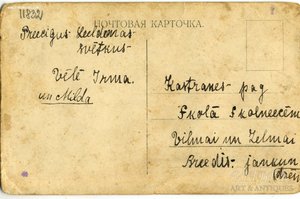 11832
ПОЧТОВАЯ КАРТОЧКА.
Preecigus Seedemas
svētkus
Vēlē Irma
un Milda
Kastranes pag
Skolā Skolneecēm
Vilmai un Zelmai
Breedis
ART & ANTIQUES